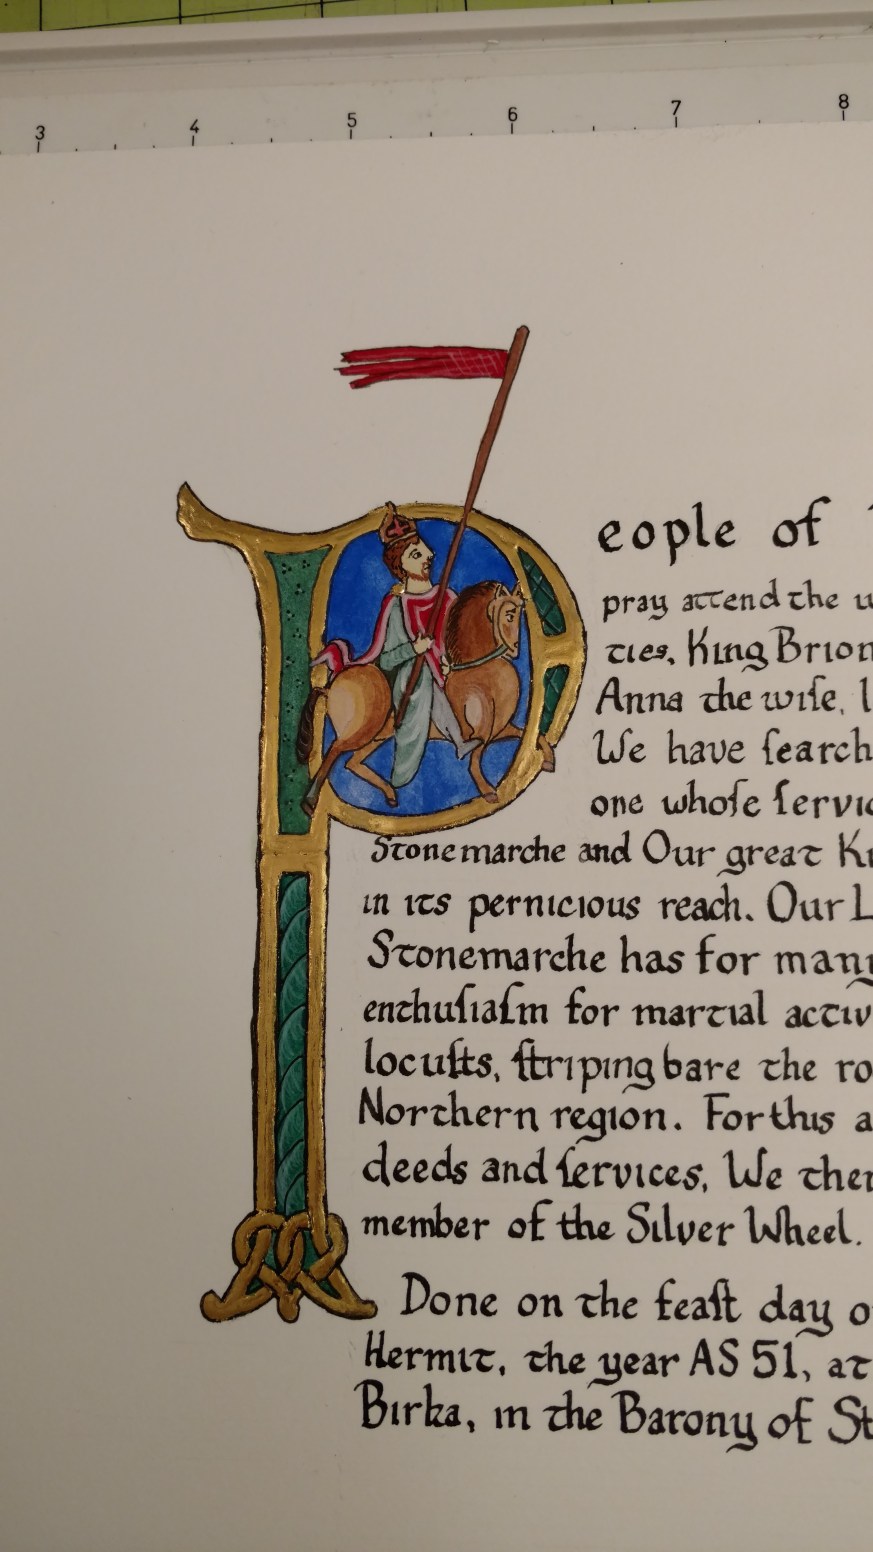 3 4 5 6 7 8
People of
pray attend the
ties, King Brion
Anna the wife,
We have ſearch
one whoſe ſervic
Stonemarche and Our great
in its pernicious reach. Our L
Stonemarche has for many
enthuſiaſm for martial activ
locuſts, ſtriping bare the ro
Northern region. For this a
deeds and ſervices, We ther
member of the Silver Wheel.
Done on the feaſt day o
Hermit, the year AS 51, at
Birka, in the Barony of St